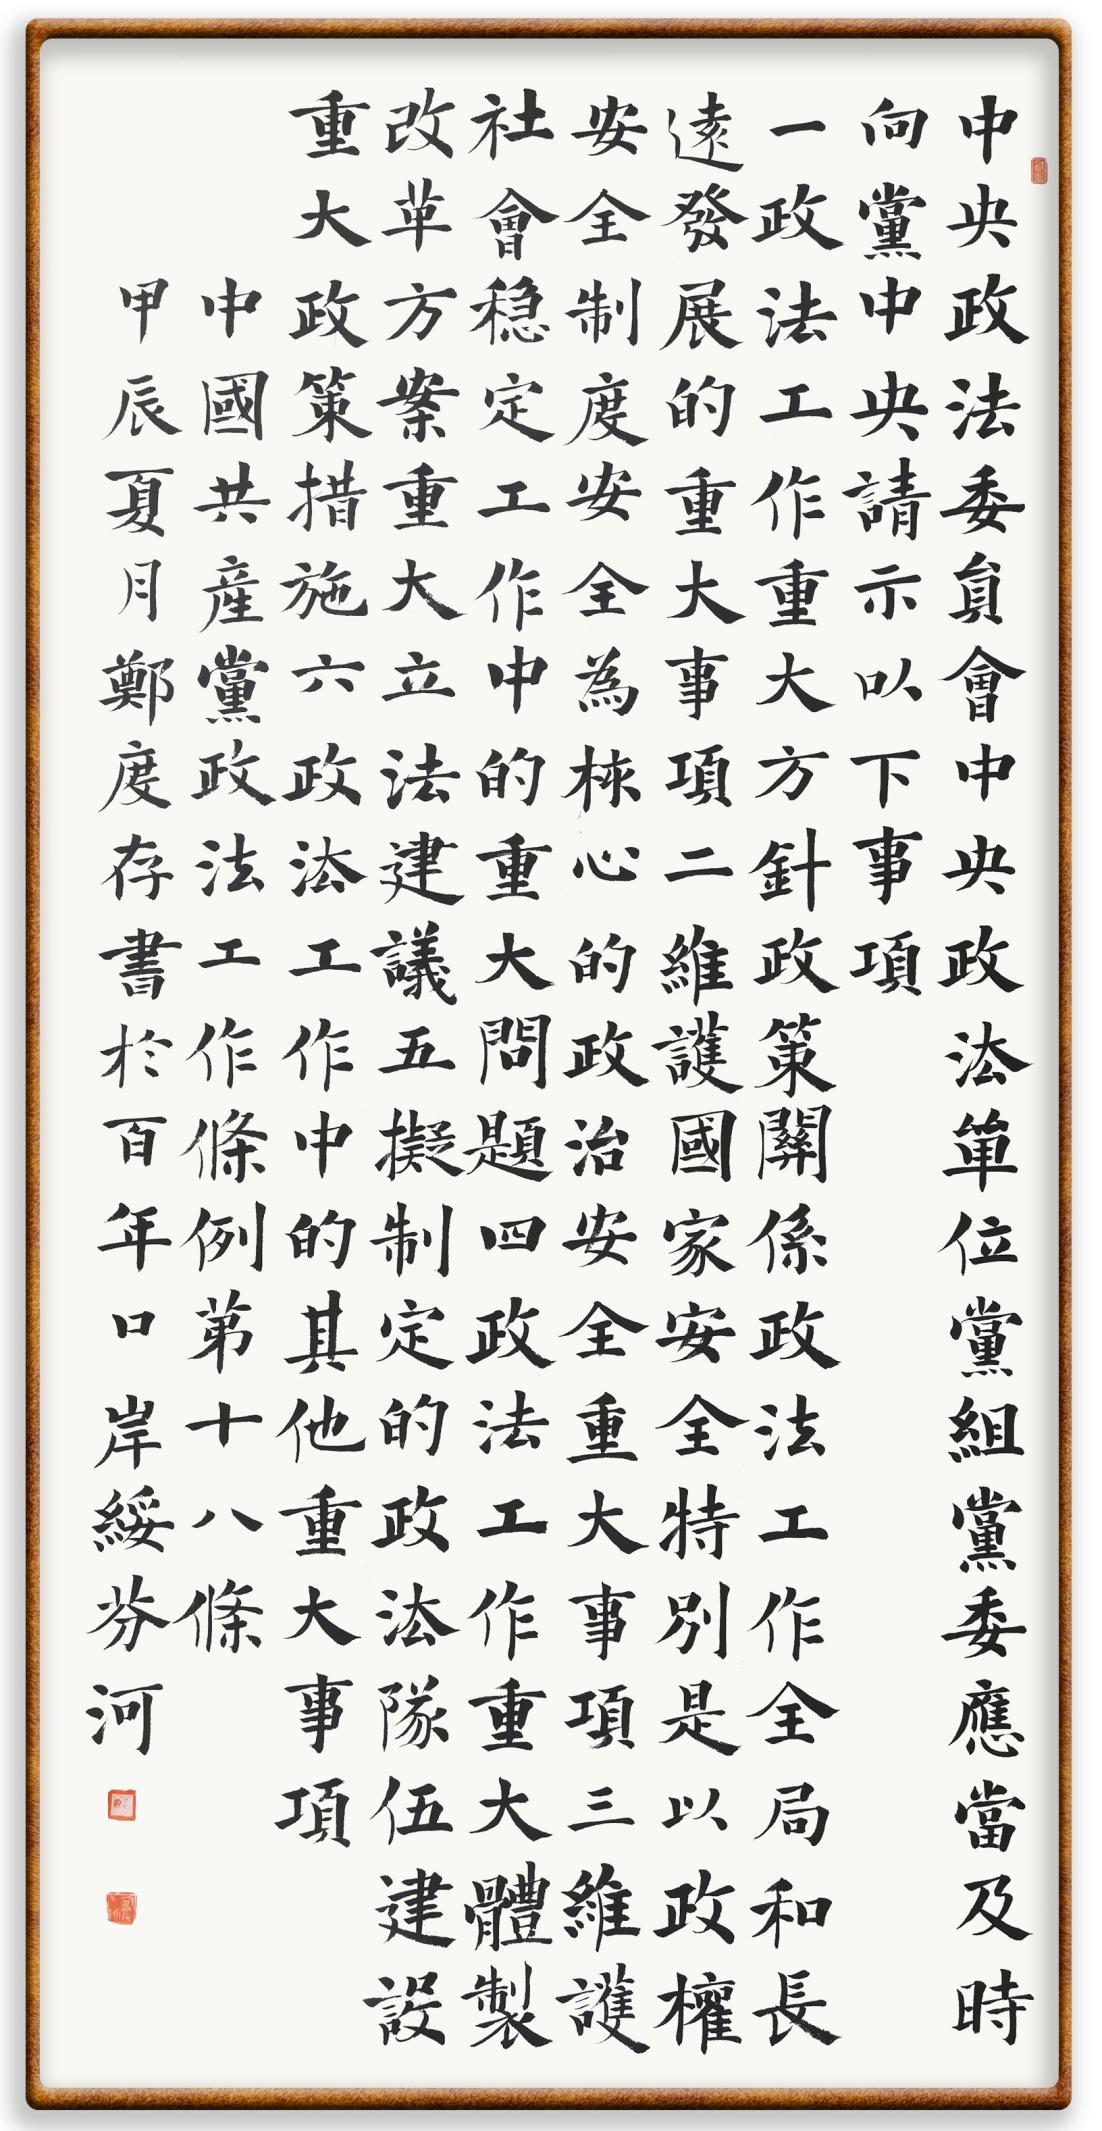 中央政法委員會中央政法單位黨組黨委應當及時
向黨中央請示以下事項
一政法工作重大方針政策關係政法工作全局和長
遠發展的重大事項二維護國家安全特別是以政權
安全制度安全為核心的政治安全重大事項三維護
社會穩定工作中的重大問題四政法工作重大體製
改革方案重大立法建議五擬制定的政法隊伍建設
重大政策措施六政法工作中的其他重大事項
中國共產黨政法工作條例第十八條
甲辰夏月鄭度存書於百年口岸綏芬河